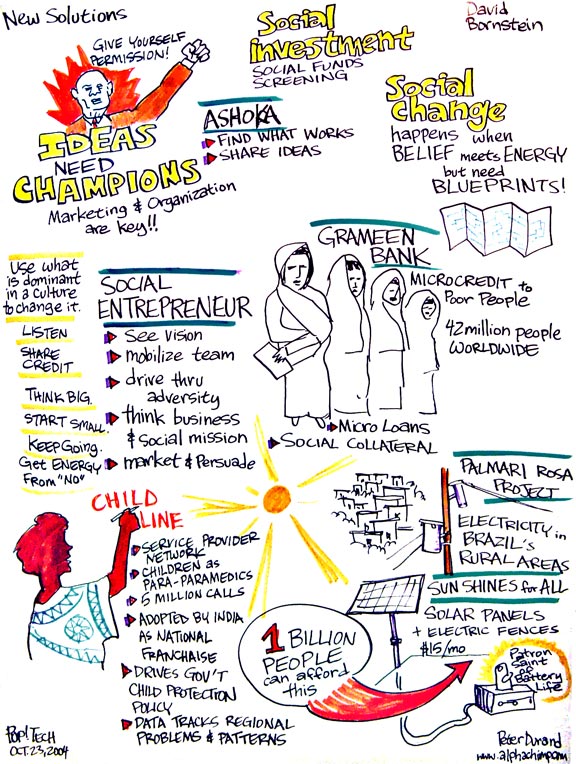 New Solutions
David
Bornstein
GIVE YOURSELF
PERMISSION!
IDEAS
NEED
CHAMPIONS
Marketing & Organization
are key!!
Social
investment
SOCIAL FUNDS
SCREENING
ASHOKA
FIND WHAT WORKS
SHARE IDEAS
Social
change
happens when
BELIEF meets ENERGY
but need
BLUEPRINTS!
Use what
is dominant
in a culture
to change it.
LISTEN
SHARE
CREDIT
THINK BIG.
START SMALL.
KEEP GOING.
Get ENERGY
From "NO"
SOCIAL
ENTREPRENEUR
See Vision
mobilize team
drive thru
adversity
think business
& social mission
market & Persuade
GRAMEEN
BANK
MICROCREDIT to
Poor People
42 million people
WORLDWIDE
Micro Loans
SOCIAL COLLATERAL
CHILD
LINE
SERVICE PROVIDER
NETWORK
CHILDREN as
PARA-PARAMEDICS
5 MILLION CALLS
ADOPTED BY INDIA
AS NATIONAL
FRANCHAISE
DRIVES GOV'T
CHILD PROTECTION
POLICY
DATA TRACKS REGIONAL
PROBLEMS & PATTERNS
PALMARI ROSA
PROJECT
ELECTRICITY in
BRAZIL'S
RURAL AREAS
SUN SHINES for ALL
SOLAR PANELS
+ ELECTRIC FENCES
$15/mo
1 BILLION
PEOPLE
can afford
this
Patron
Saint
of
Battery
Life
POP!TECH
OCT. 23, 2004
Peter Durand